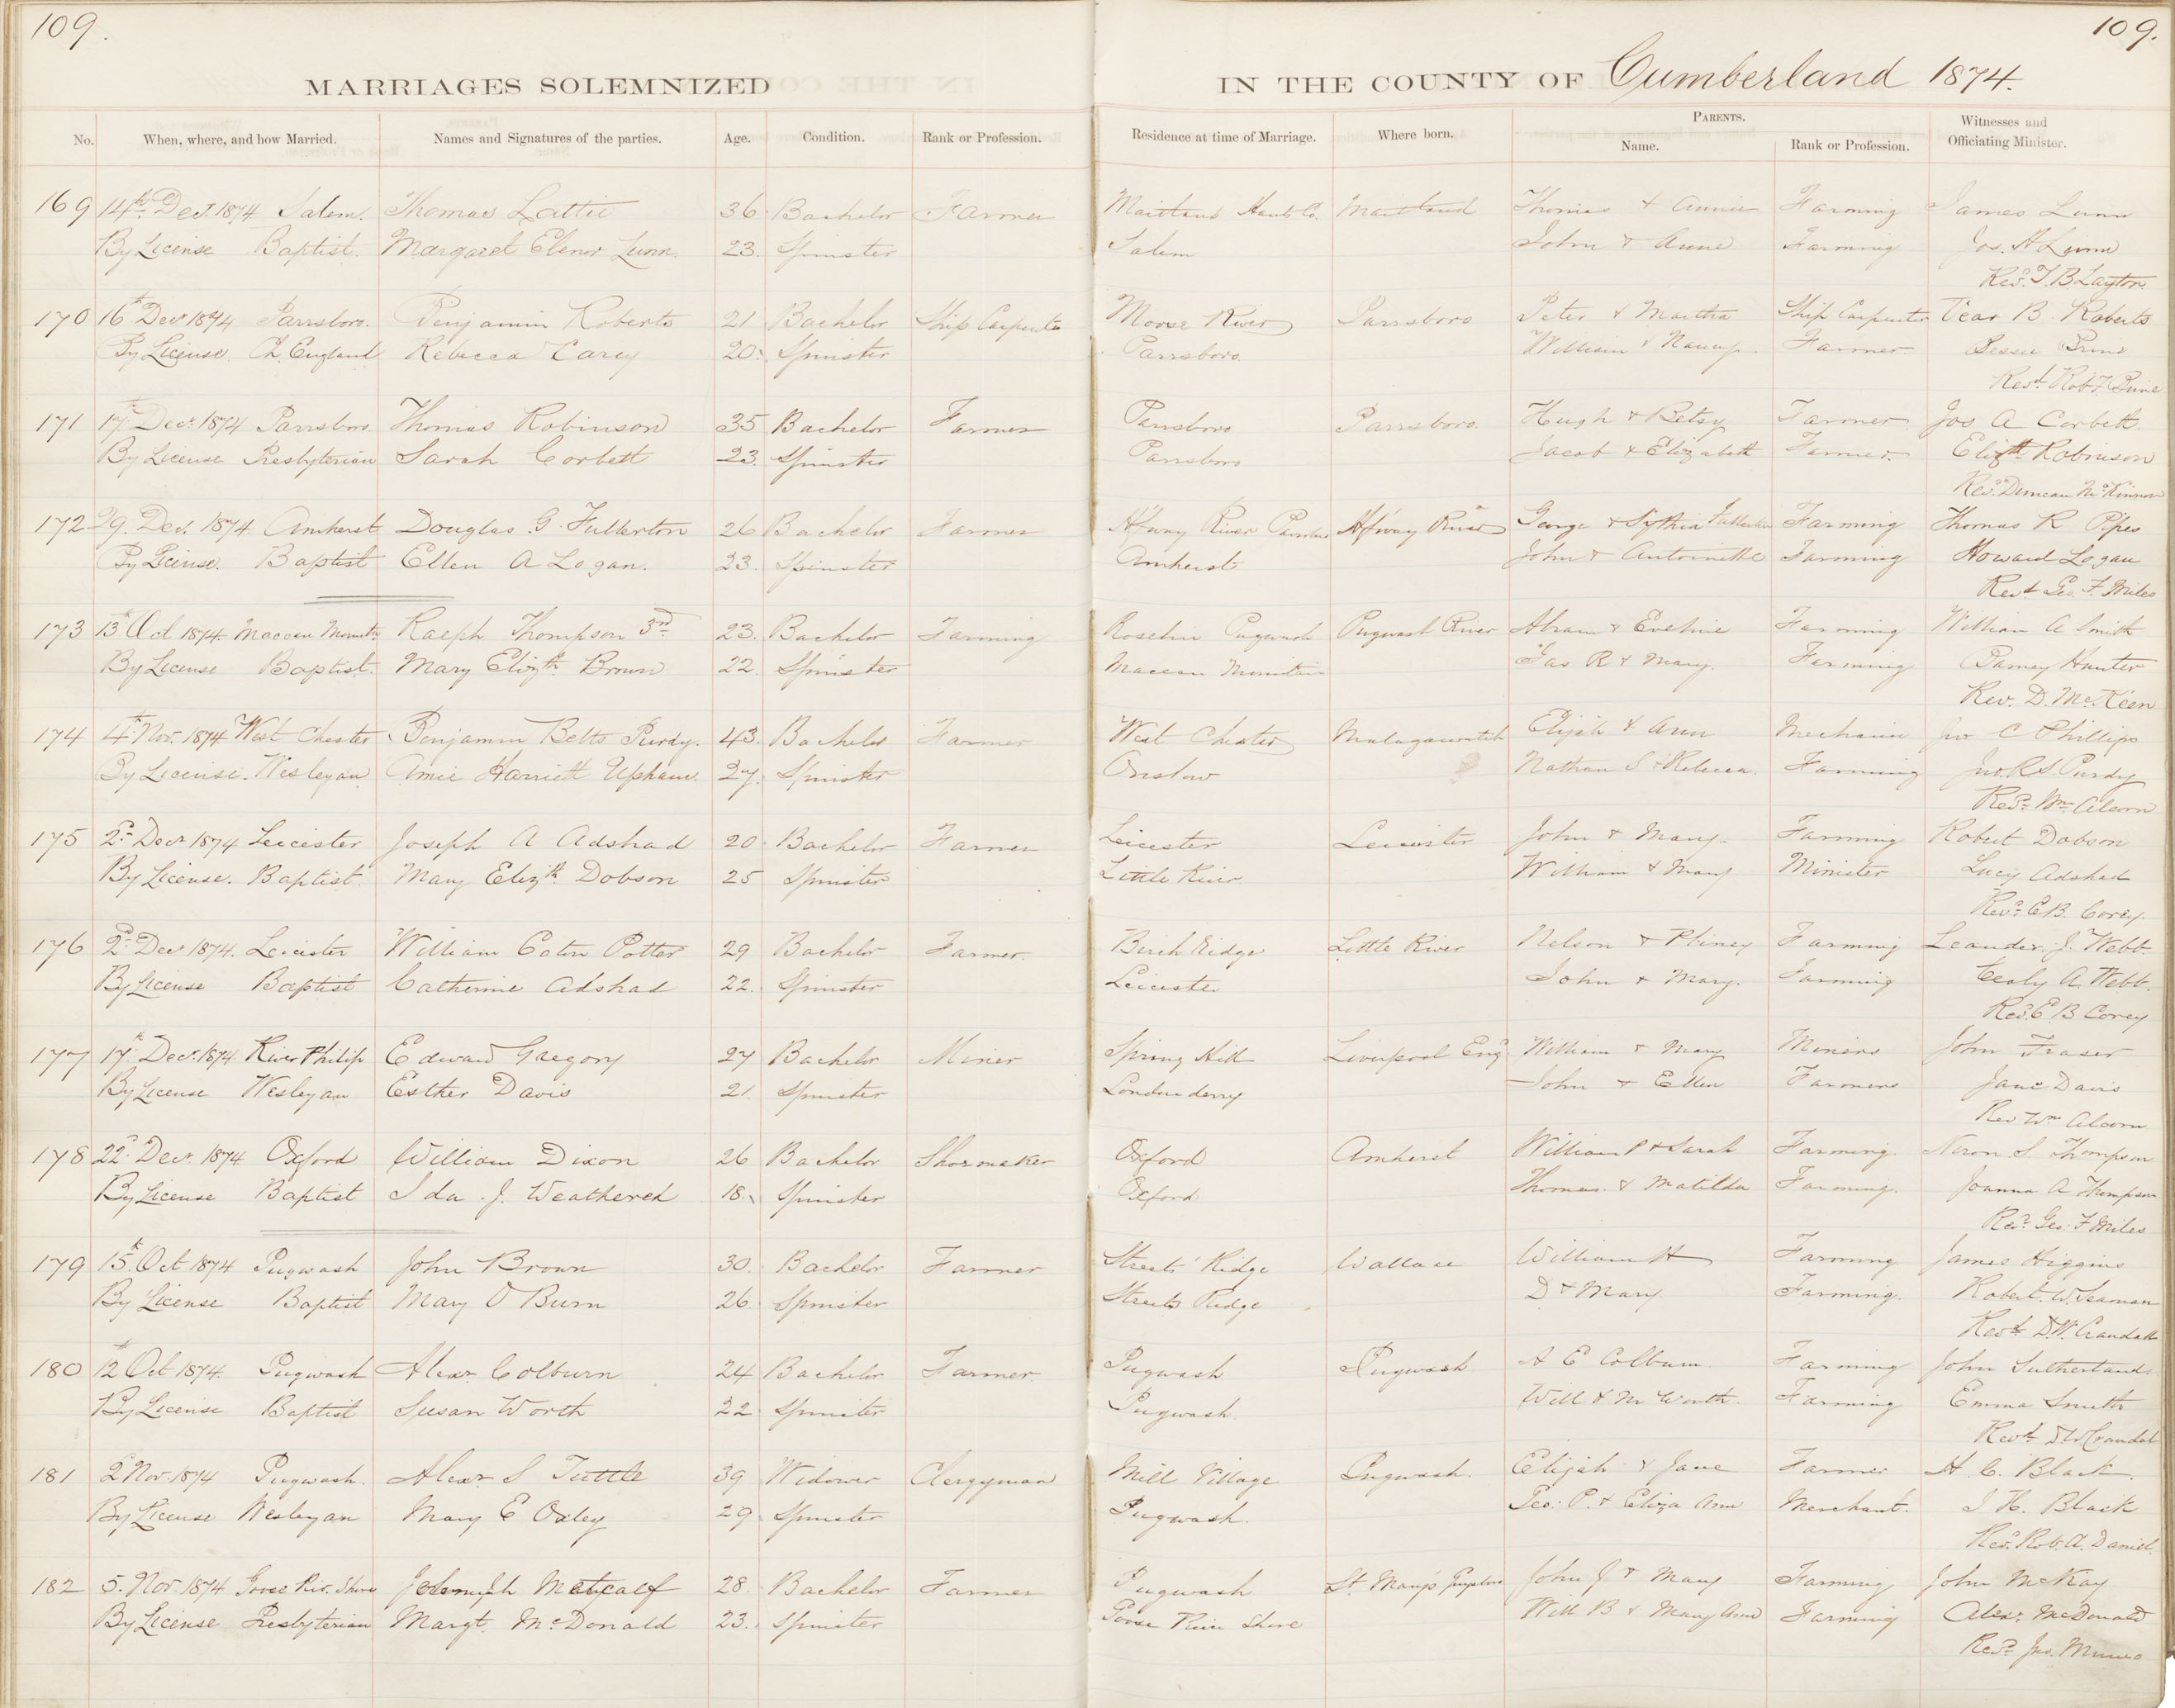 109.
109.
MARRIAGES SOLEMNIZED
IN THE COUNTY OF Cumberland 1874.
No. When, where, and how Married. Names and Signatures of the parties. Age. Condition. Rank or Profession. Residence at time of Marriage. Where born. PARENTS. Name. Rank or Profession. Witnesses and Officiating Minister.
169 14th Decr. 1874 Salem. Thomas Lattie 36 Bachelor Farmer Maitland Hants Co. Maitland Thomas & Annie Farming James Lunn
By License Baptist. Margaret Elenor Lunn. 23. Spinster Salem John & Anne Farming Jos. H Lunn
Revd. T. B Layton
170 16th Decr 1874 Parrsboro. Benjamin Roberts 21 Bachelor Ship Carpenter Moose River Parrsboro Peter & Martha Ship Carpenter B Roberts
By License. Ch. England Rebecca Carey 20. Spinster Parrsboro. William & Nancy. Farmer. Bessie
Revd. Robt. F
171 17th Decr. 1874 Parrsboro. Thomas Robinson 35 Bachelor Farmer Parrsboro Parrsboro. Hugh & Betsy Farmer Jos A Corbett
By License Presbyterian Sarah Corbett 23. Spinster Parrsboro Jacob & Elizabeth Farmer. Elizth Robinson
Revd. Duncan McKinnon
172 29. Decr. 1874 Amherst Douglas. G. Fullerton 26 Bachelor Farmer River River George & Fullerton Farming Thomas R Pipes
By License. Baptist Ellen A Logan. 23. Spinster Amherst John & Antoinette Farming Howard Logan
Revd Geo. F. Miles
173 13th Oct 1874. Maccan Mountn. Ralph Thompson 3rd 23. Bachelor Farming Roslin Pugwash Pugwash River Abram & Eveline Farming William A Smith
By License Baptist. Mary Elizth. Brown 22. Spinster Maccan Mountain Jas R & Mary. Farming Hunter
Rev. D. McKeen
174 4th Nov. 1874 West Chester Benjamin Betts Purdy. 43. Bachelor Farmer West Chester Malagawatch Elijah & Ann Mechanic Jno C Phillips
By License. Wesleyan Amie Harriett Upham. 27. Spinster Onslow Nathan S & Rebecca. Farming Jno. R. S. Purdy
Revd. Wm Alcorn
175 2d Decr 1874 Leicester Joseph A Adshad 20. Bachelor Farmer Leicester Leicester John & Mary. Farming Robert Dobson
By License. Baptist. Mary Elizth. Dobson 25 Spinster Little River William & Mary Minister Lucy Adshad
Revd. E B. Corey.
176 2d Decr 1874. Leicester William Eaton Potter 29 Bachelor Farmer. Birch Ridge Little River Nelson & Farming Leander. J. Webb.
By License Baptist Catherine Adshad 22. Spinster Leicester John & Mary. Farming A. Webb.
Revd. E. B Corey
177 17th Decr. 1874. River Philip Edward Gregory 27 Bachelor Miner Spring Hill Liverpool Engd William & Mary Miners John Fraser
By License Wesleyan Esther Davis 21. Spinster Londonderry John & Ellen Farmers Jane Davis
Rev Wm Alcorn
178 22d. Decr. 1874 Oxford William Dixon 26 Bachelor Shoemaker Oxford Amherst William P & Sarah Farming. S. Thompson
By License Baptist Ida. J. Weathered 18. Spinster Oxford Thomas. & Matilda Farming. Joanna A Thompson
Revd. Geo. F Miles
179 15th Oct 1874 Pugwash John Brown 30. Bachelor Farmer Streets' Ridge Wallace William H Farming James Higgins
By License Baptist Mary O Burn 26. Spinster Streets Ridge D & Mary Farming. Robert. W. Seaman
Revd. D. W. Crandall
180 12th Oct 1874. Pugwash Alexr Colburn 24 Bachelor Farmer Pugwash Pugwash A E Colburn Farming John Sutherland
By License Baptist Susan Worth 22 Spinster Pugwash. Will & M Worth. Farming Emma Smith
Revd. D W Crandal
181 2d Nov. 1874 Pugwash. Alexr S Tuttle 39 Widower Clergyman Mill Village Pugwash. Elijah & Jane Farmer H. C. Black.
By License Wesleyan Mary E Oxley 29 Spinster Pugwash. Geo: P. & Eliza Ann Merchant. J H. Black
Revd. Rob. A. Daniel.
182 5. Nov. 1874 Goose Riv. Shore Metcalf 28. Bachelor Farmer Pugwash St. Mary's John J & Mary Farming John McKay
By License Presbyterian Margt. McDonald 23. Spinster Goose River Shore Will B & Mary Ann Farming Alexr. McDonald
Revd. Jno. Munro